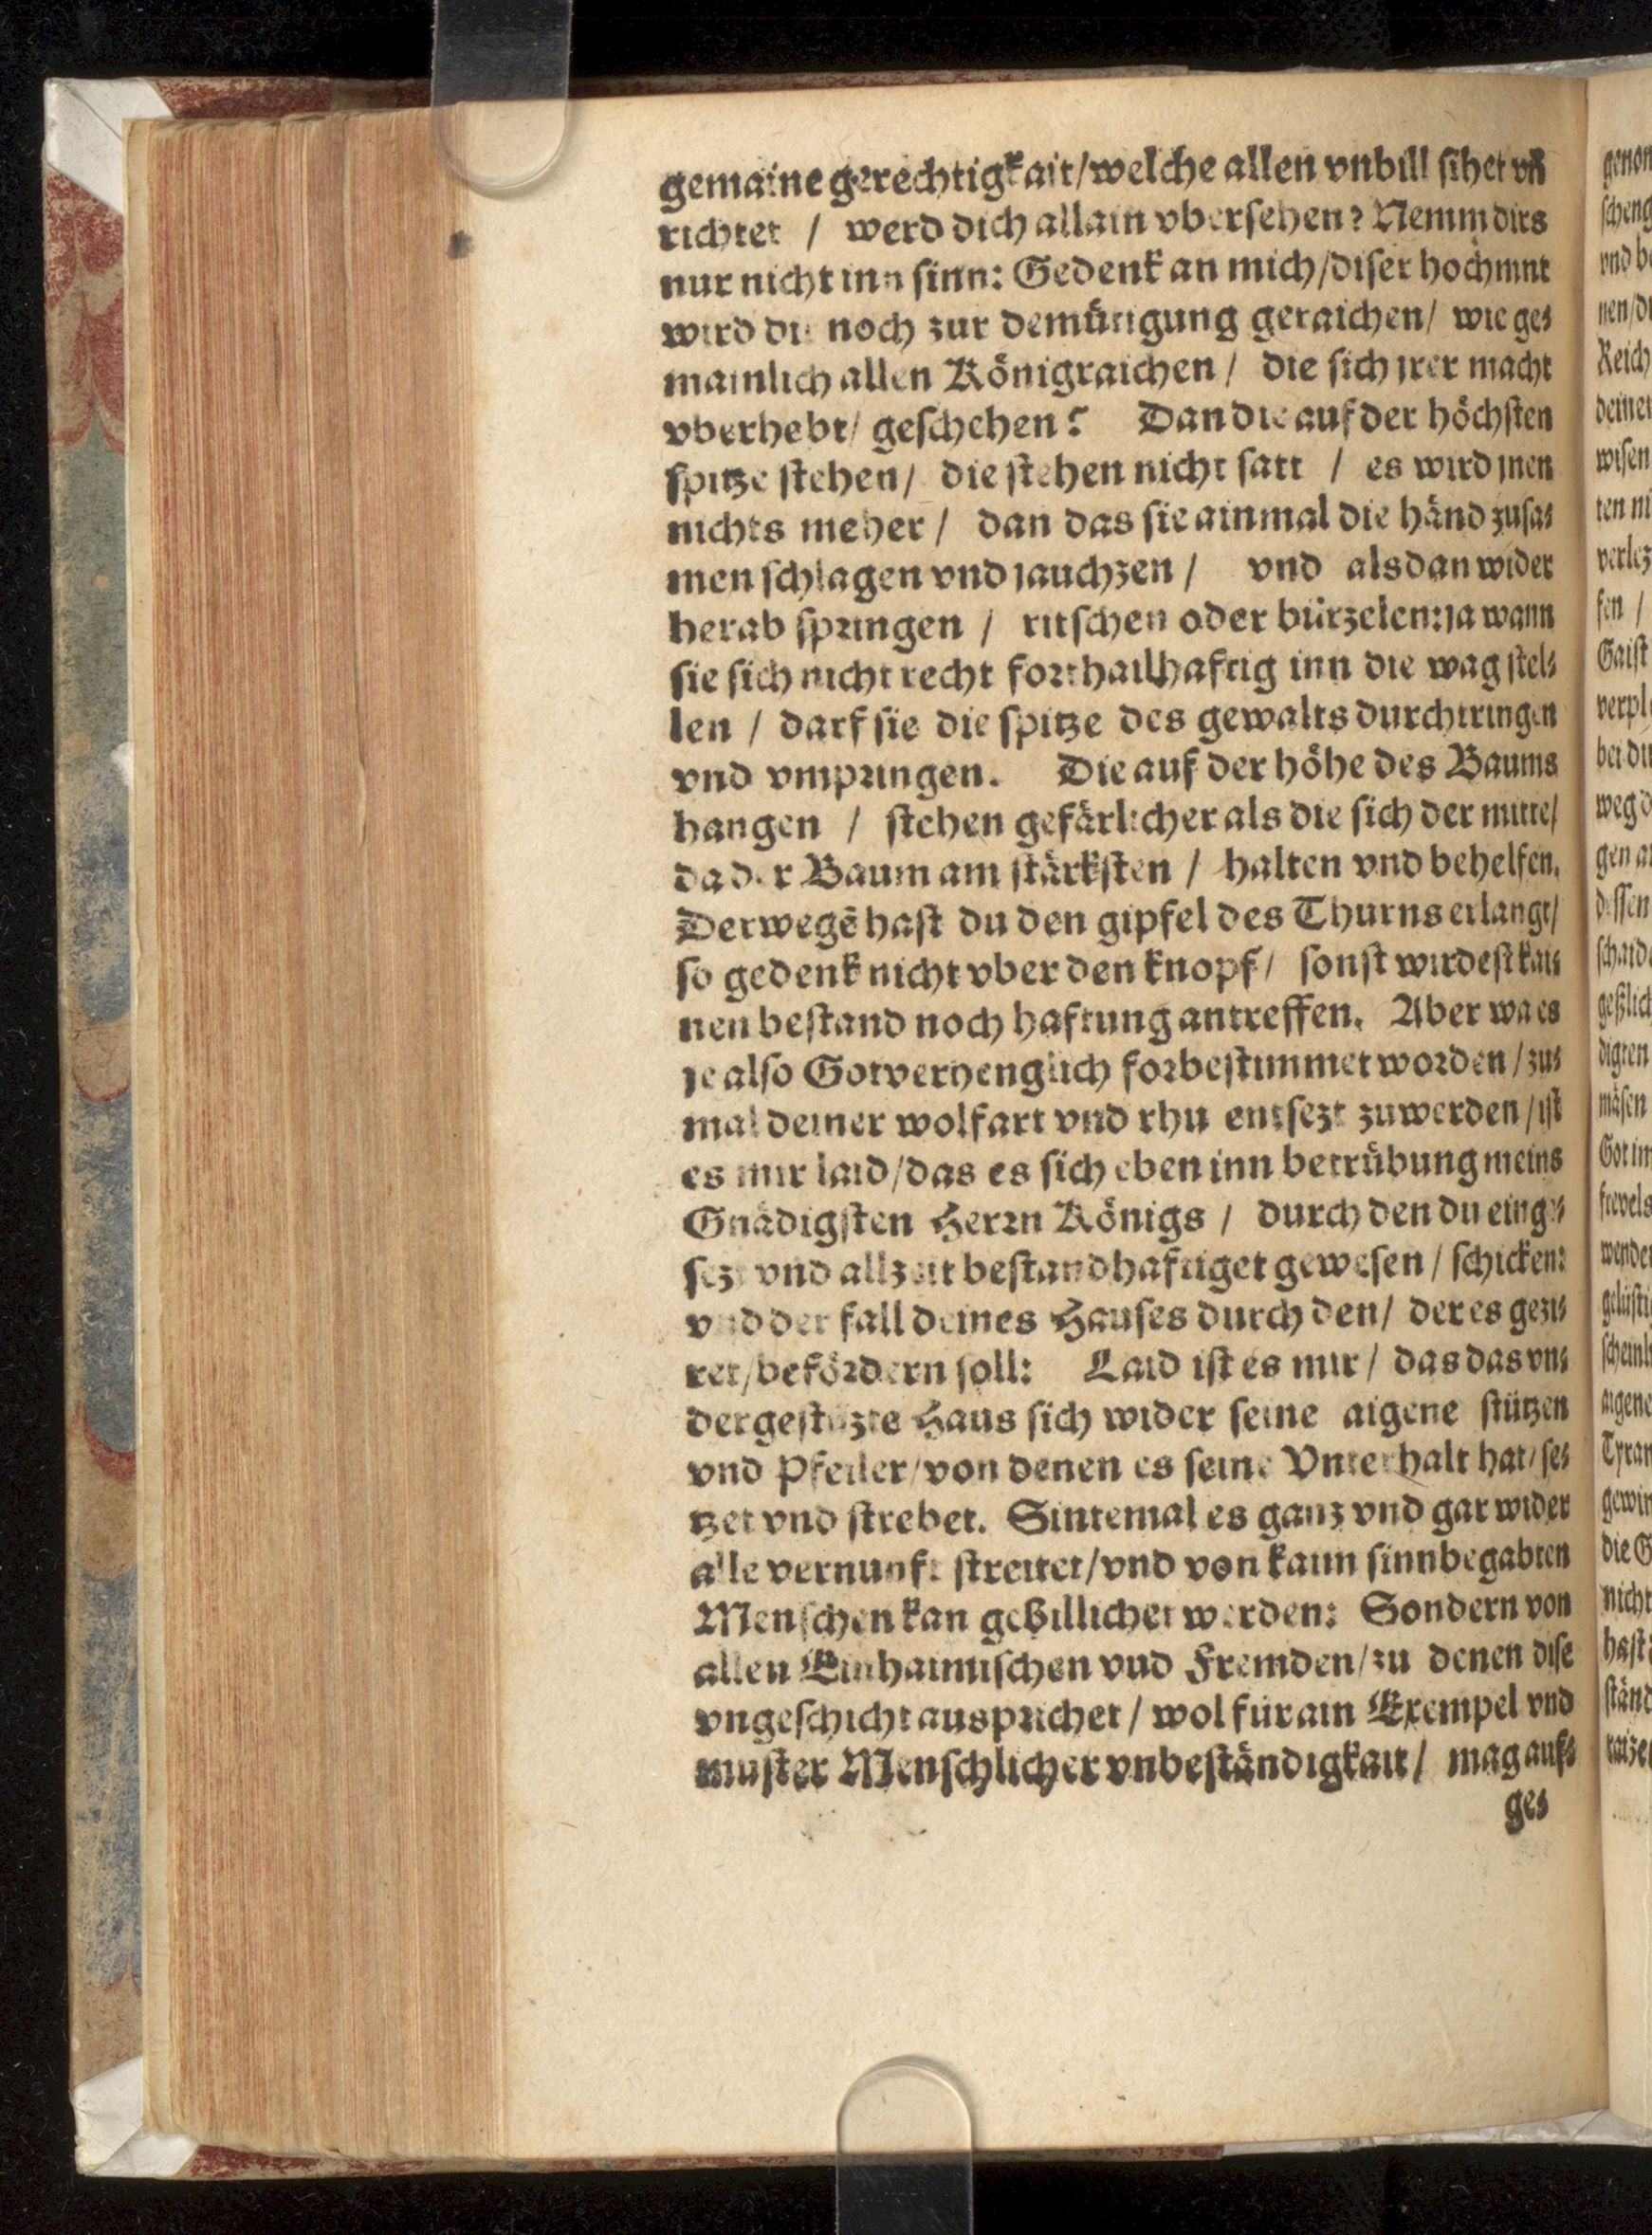 gemaine gerechtigkait/welche allen vnbill sihet vñ
richtet / werd dich allain vbersehen? Nemm dirs
nur nicht inn sinn: Gedenk an mich/diser hochmnt
wird dir noch zur demütigung geraichen/ wie ge⸗
mainlich allen Königraichen / die sich jrer macht
vberhebt/ geschehen? Dan die auf der höchsten
spitze stehen/ die stehen nicht satt / es wird jnen
nichts meher / dan das sie ainmal die händ zusa⸗
men schlagen vnd jauchzen / vnd alsdan wider
herab springen / ritschen oder bürzelen: ja wann
sie sich nicht recht forthailhaftig inn die wag stel⸗
len / darf sie die spitze des gewalts durchtringen
vnd vmpringen. Die auf der höhe des Baums
hangen / stehen gefärlicher als die sich der mitte/
da der Baum am stärksten / halten vnd behelfen.
Derwegē hast du den gipfel des Thurns erlangt/
so gedenk nicht vber den knopf / sonst wirdest kai⸗
nen bestand noch haftung antreffen. Aber wa es
je also Gotverhenglich forbestimmet worden / zu⸗
mal deiner wolfart vnd rhu entsezt zuwerden / ist
es mir laid/das es sich eben inn betrübung meins
Gnädigsten Herrn Königs / durch den du einge⸗
sezt vnd allzeit bestandhaftiget gewesen / schicken:
vnd der fall deines Hauses durch den/ der es gezi⸗
ret/befördern soll: Laid ist es mir / das das vn⸗
dergestüzte Haus sich wider seine aigene stützen
vnd Pfeiler/von denen es seine Vnterhalt hat/ se⸗
tzet vnd strebet. Sintemal es ganz vnd gar wider
alle vernunft streitet/vnd von kaim sinnbegabten
Menschen kan gebillichet werden: Sondern von
allen Einhaimischen vud Fremden/zu denen dise
vngeschicht auspüchet / wol für ain Exempel vnd
muster Menschlicher vnbeständigkait / mag auf⸗
ge⸗